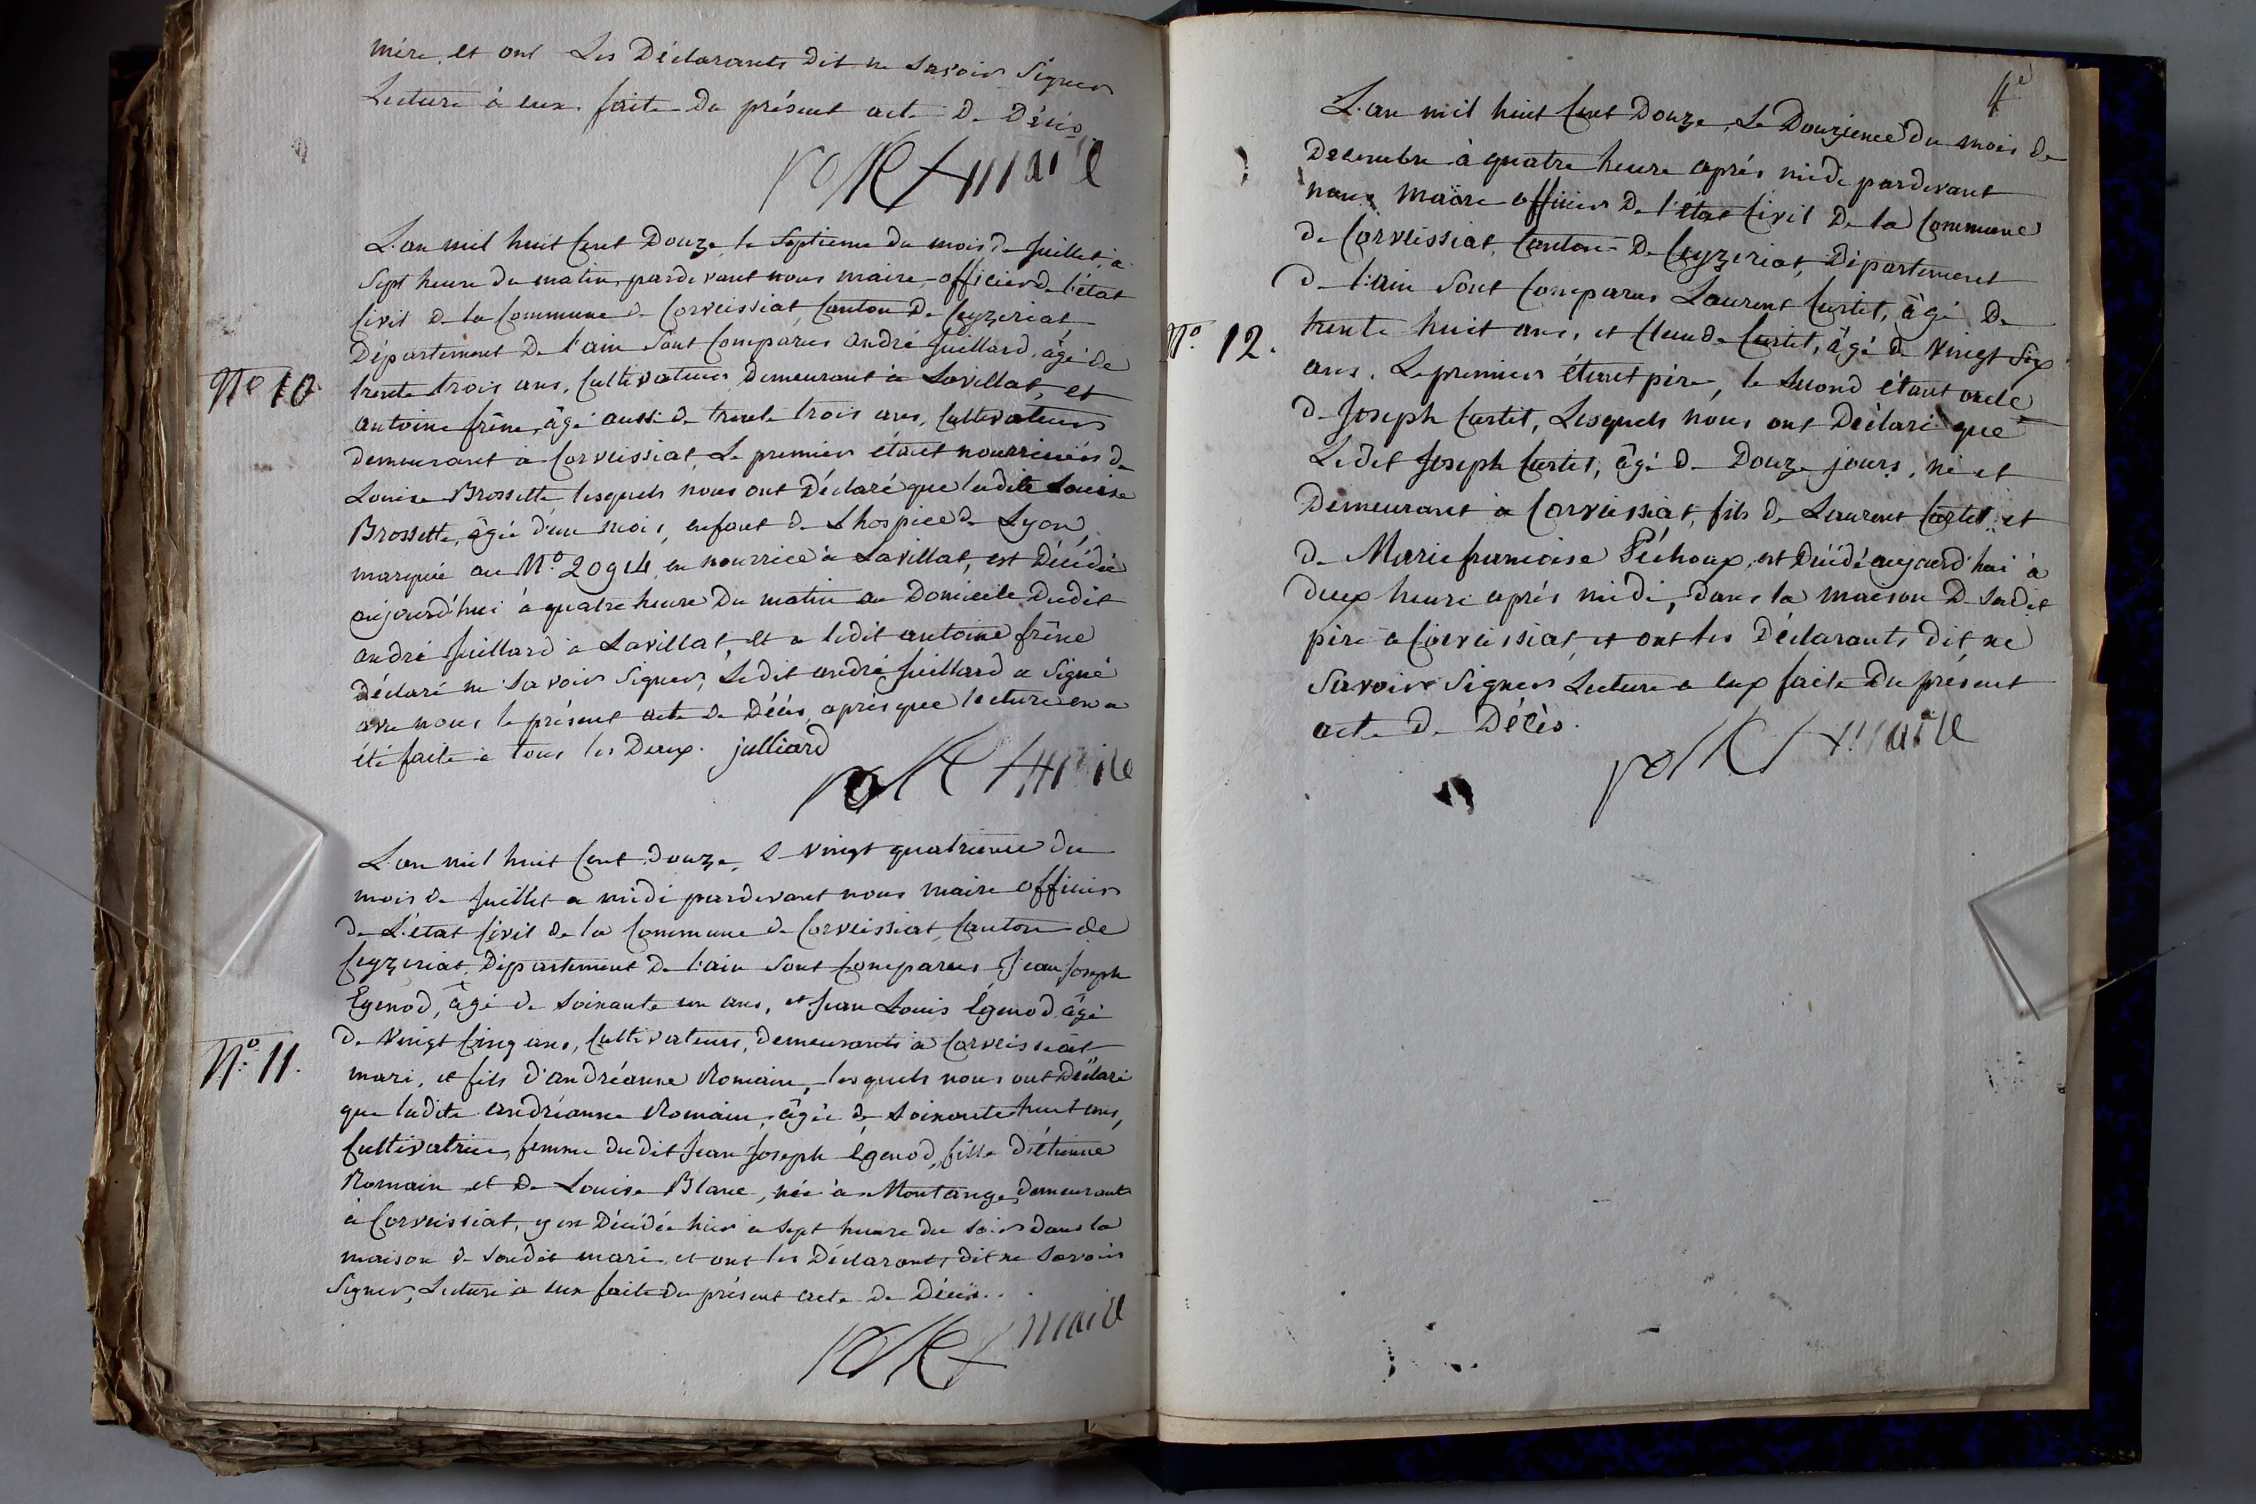 mère, et ont Les Déclarants Dit ne Savoir Signer
Lecture à eux faite du présent acte De Décès
maire
L'an mil huit Cent Douze le Septieme du mois de Juillet à
Sept heure du matin pardevant nous maire officier de l'état
Civil de la Commune de Corveissiat, Canton De Ceyzeriat
Département De l'ain Sont Comparus andré Juillard, âgé de
trente trois ans, Cultivateur demeurant à Lavillat, et
N° 10.
antoine frêne, âgé aussi de trente trois ans, Cultivateur
demeurant à Corveissiat, Le premier étant nourricier de
Louise Brossette lesquels nous ont Déclaré que ladite Louise
Brossette, âgée d'un mois, enfant de L'hospice de Lyon,
marquée au N° 20914 en nourrice à Lavillat, est Décédée
aujourd'hui à quatre heure Du matin au Domicile Dudit
andré Juillard à Lavillat, et a ledit antoine frêne
déclaré ne Savoir Signer, Ledit andré Juillard a Signé
avec nous le présent acte de Décès, après que lecture en a
été faite à tous les Deux. julliard
maire
L'an mil huit Cent Douze, le vingt quatrieme du
mois de Juillet a midi pardevant nous maire officier
de L'état Civil de la Commune de Corveissiat, Canton de
Ceyzeriat, Département De l'ain Sont Comparus Jean Joseph
Egenod, âgé de Soixante un ans, et Jean Louis Egenod âgé
de Vingt Cinq ans, Cultivateurs, demeurants à Corveissiat
N° 11.
mari, et fils d'andréanne Romain, lesquels nous ont Déclaré
que ladite andréanne Romain, âgée de Soixante huit ans,
Cultivatrice, femme dudit Jean Joseph Egenod, fille d'étienne
Romain et De Louise Blanc, née à Montange, demeurant
à Corveissiat, y est Décédée hier a Sept heure du Soir dans la
maison de Sondit mari et ont les Déclarants dit ne Savoir
Signer, Lecture à eux faite du présent acte de Décès.
maire
4e
L'an mil huit Cent Douze, Le Douzieme du mois de
Decembre à quatre heure après midi pardevant
nous Maire officier De l'état Civil De la Commune
de Corveissiat, Canton De Ceyzeriat, Département
De l'ain Sont Comparus Laurent Curtet, âgé De
N° 12.
trente huit ans, et Claude Curtet, âgé de Vingt Six
ans. Le premier étant père, le Second étant oncle
de Joseph Curtet, Lesquels nous ont Déclaré que
Ledit Joseph Curtet, âgé de Douze jours, né et
Demeurant à Corveissiat, fils de Laurent Curtet et
de Marie francoise Péchoux, est Décédé aujourd'hui à
deux heure après midi, dans la maison De Sondit
père à Corveissiat, et ont les Déclarants dit ne
Savoir Signer Lecture a eux faite Du présent
acte De Décès.
maire